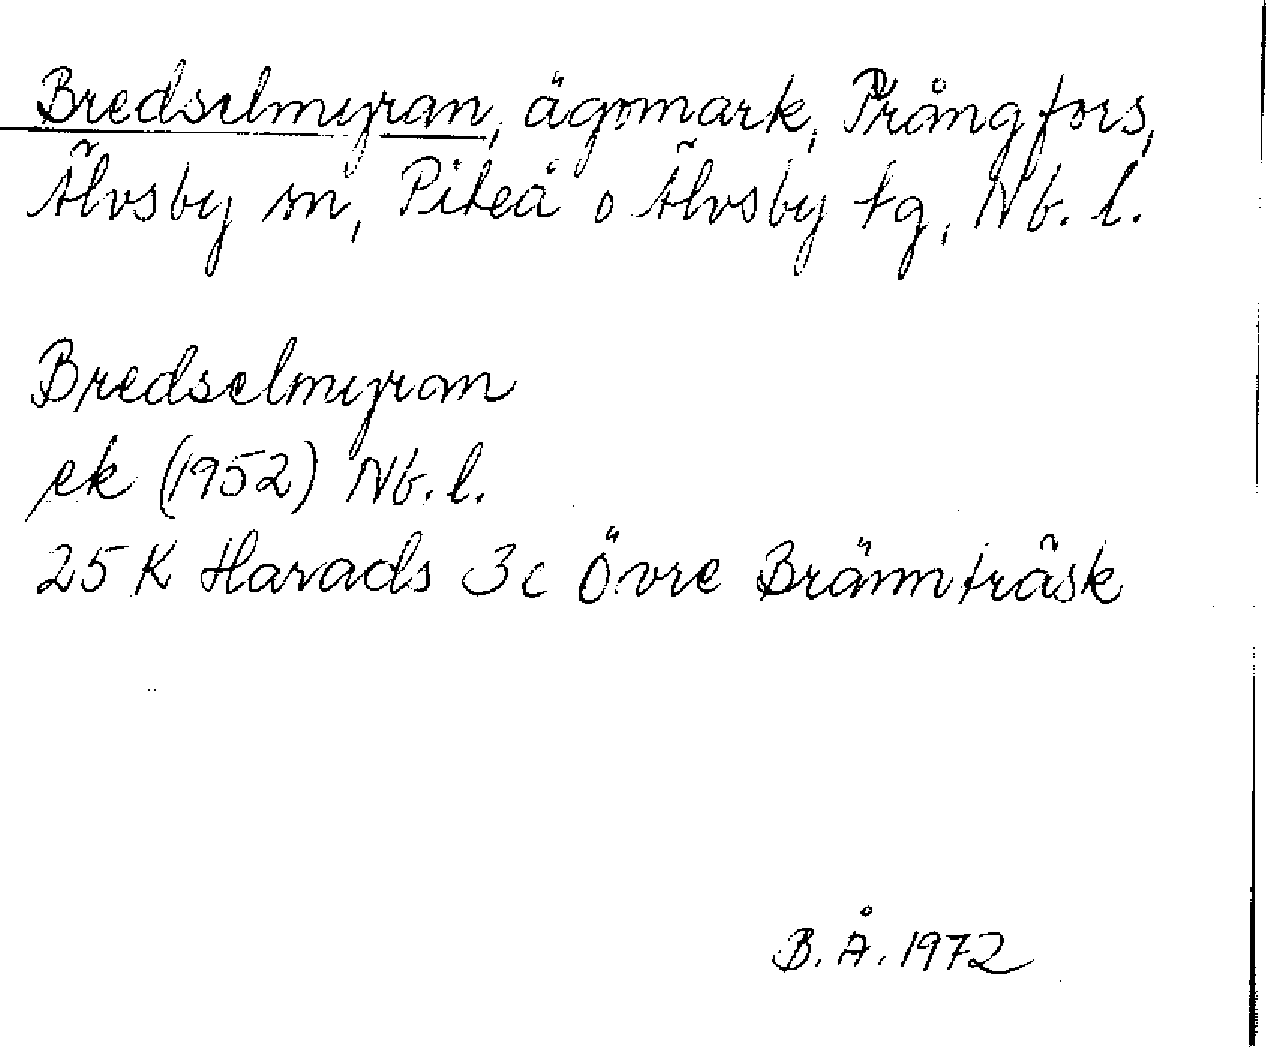 Bredselmyran, ägomark, Prångfors,
Älvsby sn, Piteå o Älvsby tg, Nb. l.
Bredselmyran
ek (1952) Nb. l.
25 K Harads 3c Övre Brännträsk
B. Å. 1972